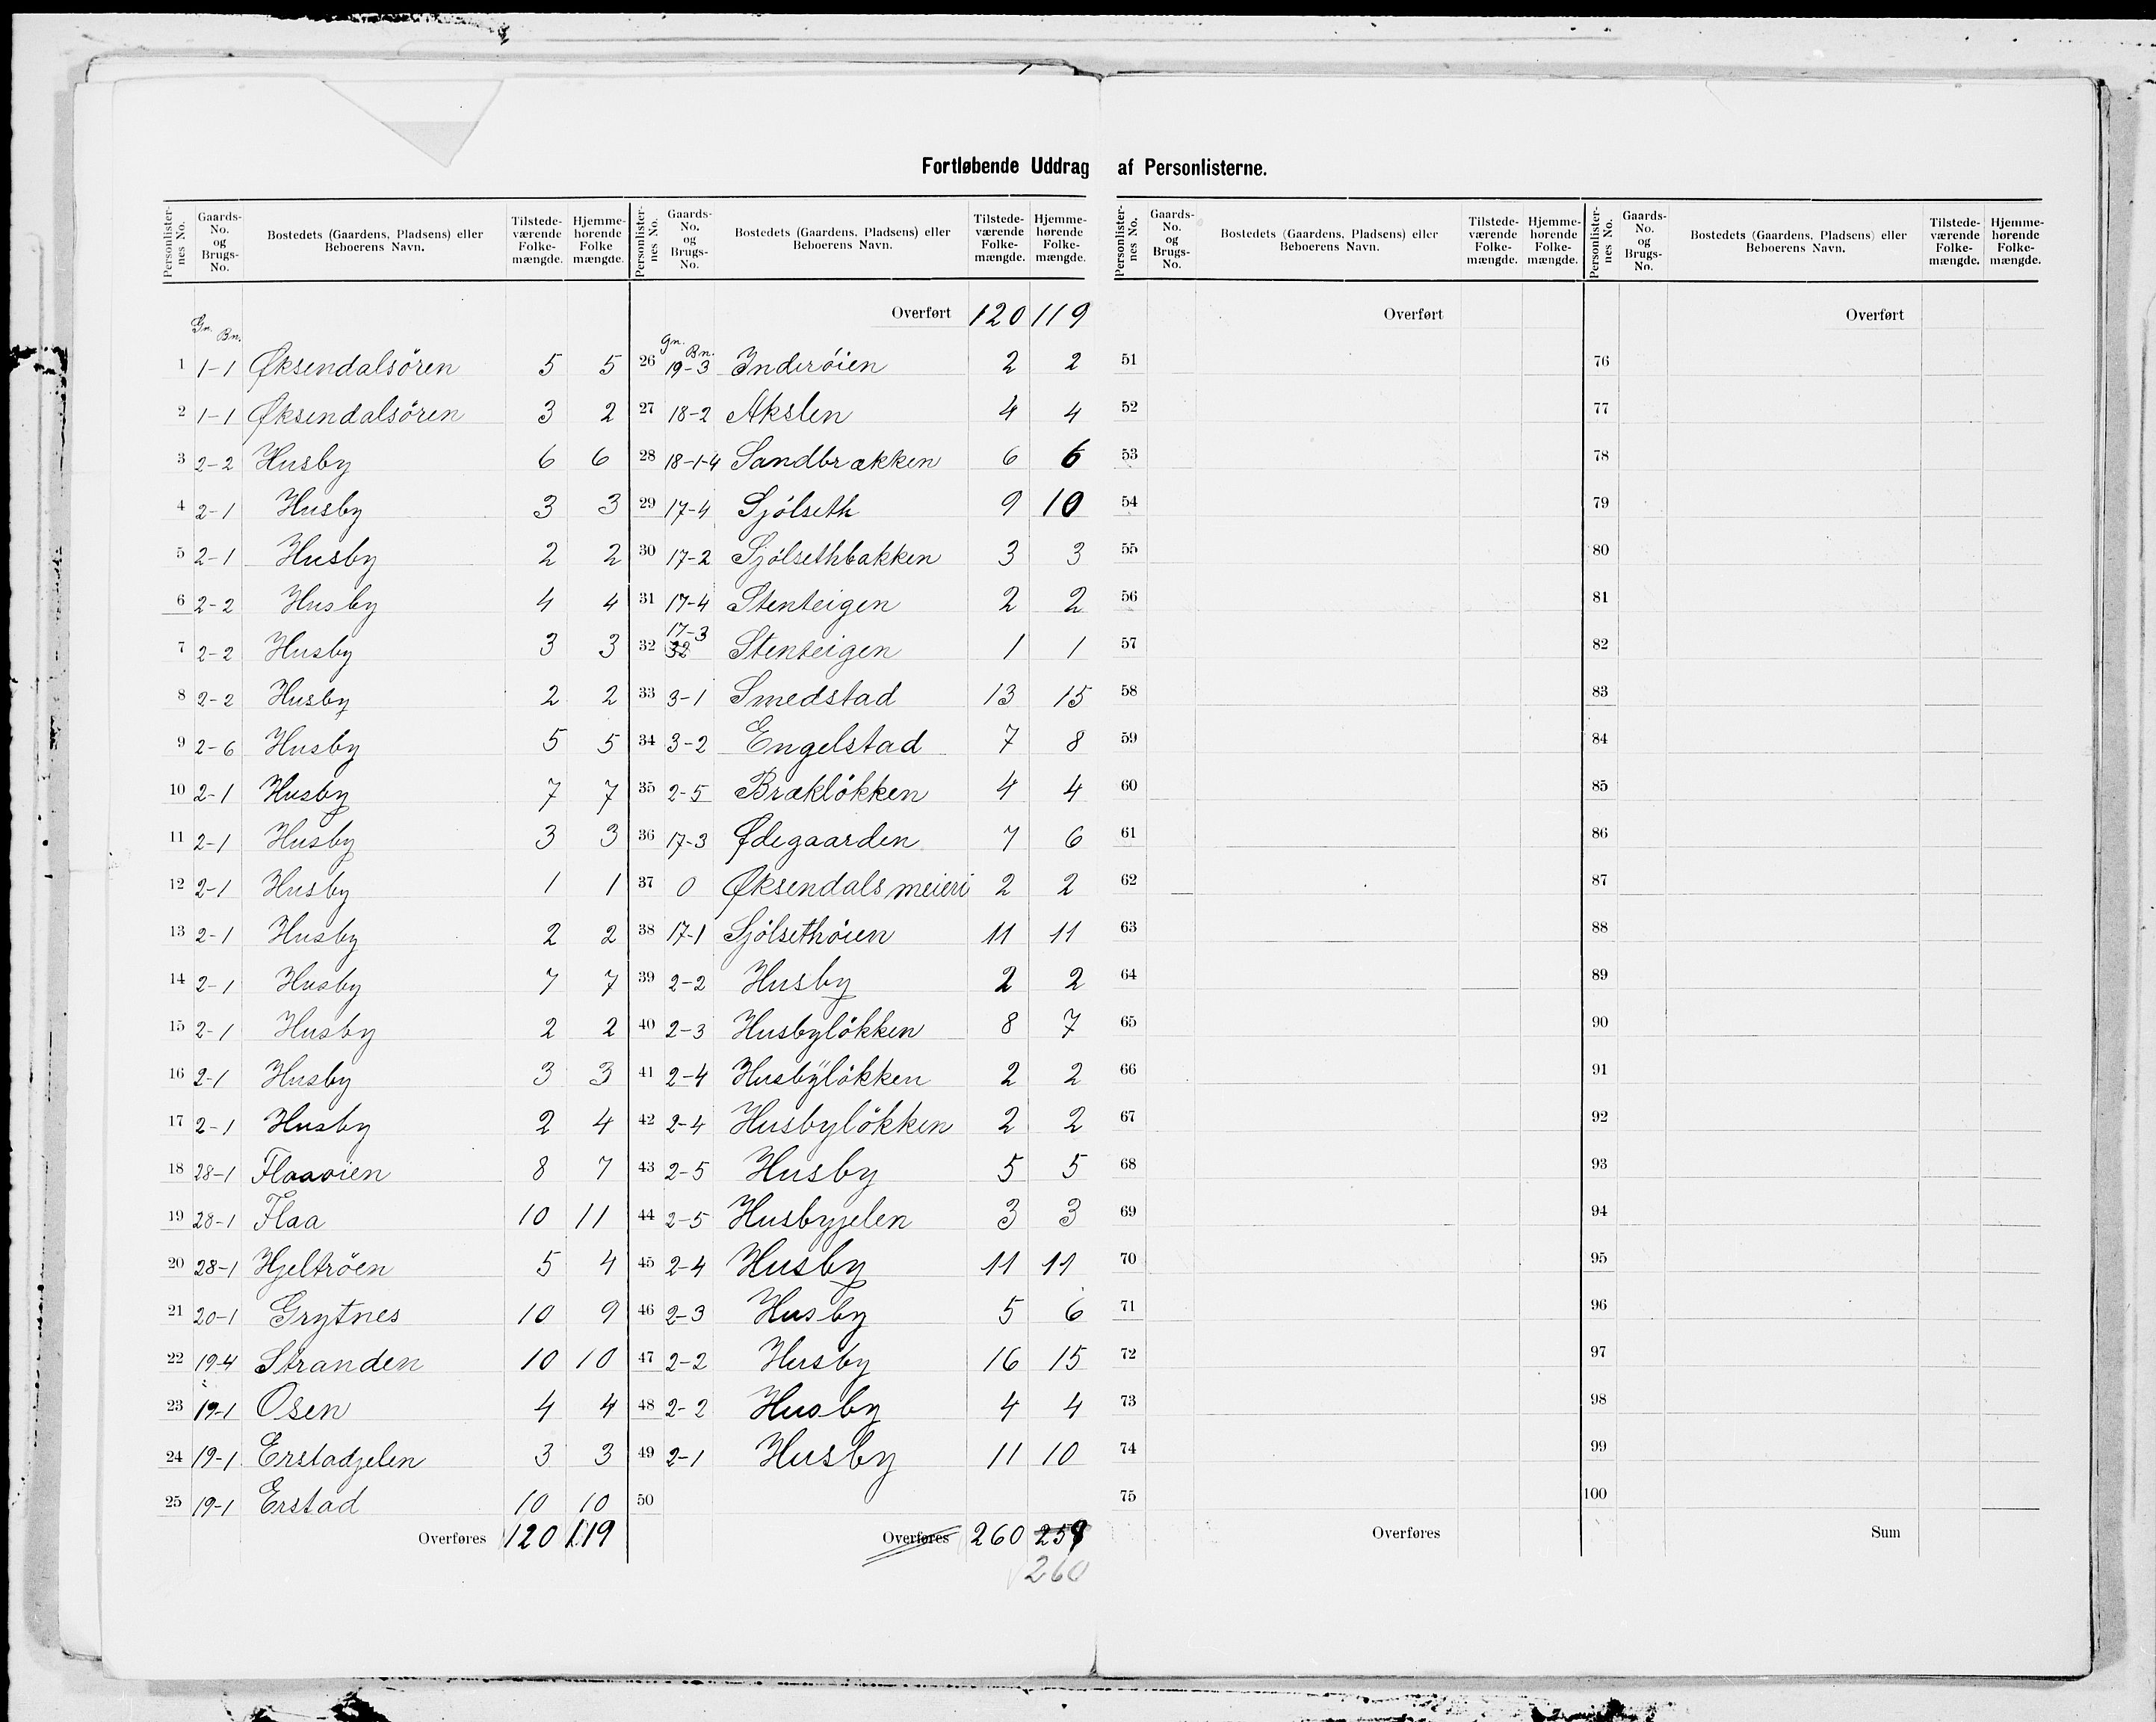 Fortløbende Uddrag af Personlisterne.
Personlister-nes No. Gaards-No. og Brugs-No. Bostedets (Gaardens, Pladsens) eller Beboerens Navn. Tilstede-værende Folke-mængde. Hjemme-hørende Folke mængde.
Gn. Bn.
1 1-1 Øksendalsören 5 5
2 1-1 Øksendalsören 3 2
3 2-2 Husby 6 6
4 2-1 Husby 3 3
5 2-1 Husby 2 2
6 2-2 Husby 4 4
7 2-2 Husby 3 3
8 2-2 Husby 2 2
9 2-6 Husby 5 5
10 2-1 Husby 7 7
11 2-1 Husby 3 3
12 2-1 Husby 1 1
13 2-1 Husby 2 2
14 2-1 Husby 7 7
15 2-1 Husby 2 2
16 2-1 Husby 3 3
17 2-1 Husby 2 4
18 28-1 Flaaoien 8 7
19 28-1 Flaa 10 11
20 28-1 Hjeltröen 5 4
21 20-1 Grytnes 10 9
22 19-4 Stranden 10 10
23 19-1 Osen 4 4
24 19-1 Erstadjelen 3 3
25 19-1 Erstad 10 10
Overføres 120 119
Personlister-nes No. Gaards-No. og Brugs-No. Bostedets (Gaardens, Pladsens) eller Beboerens Navn. Tilstede-værende Folke-mængde. Hjemme-hørende Folke-mængde.
Overført 120 119
Gn. Bn.
26 19-3 Inderöien 2 2
27 18-2 Akslen 4 4
28 18-1-4 Sandbrækken 6 6
29 17-4 Sjölseth 9 10
30 17-2 Sjölsethbakken 3 3
31 17-4 Stenteigen 2 2
32 17-3 32 Stenteigen 1 1
33 3-1 Smedstad 13 15
34 3-2 Engelstad 7 8
35 2-5 Bræklökken 4 4
36 17-3 Ødegaarden 7 6
37 0 Øksendals meieri 2 2
38 17-1 Sjölsethöien 11 11
39 2-2 Husby 2 2
40 2-3 Husbylökken 8 7
41 2-4 Husbylökken 2 2
42 2-4 Husbylökken 2 2
43 2-5 Husby 5 5
44 2-5 Husbyjelen 3 3
45 2-4 Husby 11 11
46 2-3 Husby 5 6
47 2-2 Husby 16 15
48 2-2 Husby 4 4
49 2-1 Husby 11 10
50
Overføres 260 259
260
Personlister-nes No. Gaards-No. og Brugs-No. Bostedets (Gaardens, Pladsens) eller Beboerens Navn. Tilstede-værende Folke-mængde. Hjemme-hørende Folke-mængde.
Overført
51
52
53
54
55
56
57
58
59
60
61
62
63
64
65
66
67
68
69
70
71
72
73
74
75
Overføres
Personlister-nes No. Gaards-No. og Brugs-No. Bostedets (Gaardens, Pladsens) eller Beboerens Navn. Tilstede-værende Folke-mængde. Hjemme-hørende Folke-mængde.
Overført
76
77
78
79
80
81
82
83
84
85
86
87
88
89
90
91
92
93
94
95
96
97
98
99
100
Sum